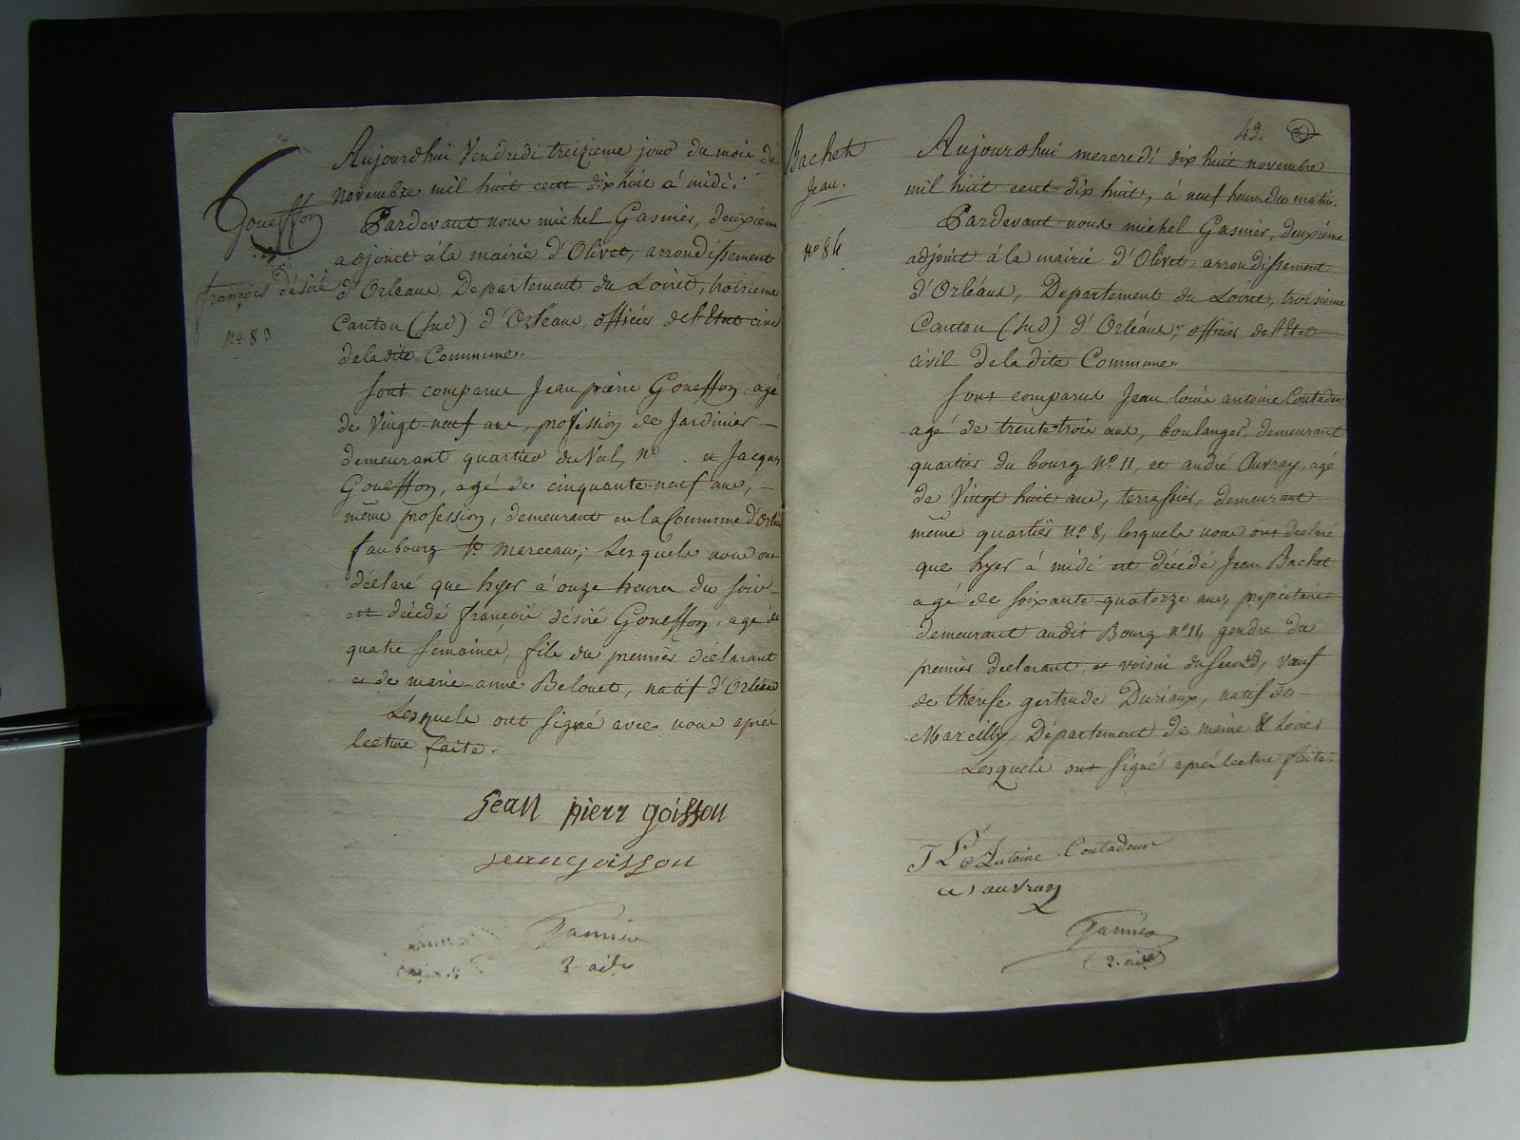 Goueffon
françois désiré
N°. 83
Aujourdhui Vendredi treizieme jour du mois de
novembre mil huit cent dix huit à midi;
Pardevant nous michel Gasnier, deuxieme
adjoint à la mairie d'Olivet, arrondissement
d'Orleans, Departement du Loiret, troisieme
Canton (Sud) d'Orleans, officier de l'Etat civil
de la dite Commune.
Sont comparus Jean pierre Goueffon, agé
de Vingt neuf ans, profession de Jardinier
demeurant quartier du Val, N° . et Jacques
Goueffon, agé de cinquante neuf ans,
même profession, demeurant en la Commune d'Orléans
faubourg St. Marceau; Lesquels nous ont
déclaré que hyer à onze heures du soir
est décédé françois désiré Goueffon, agé de
quatre semaines, fils du premier déclarant
et de marie anne Belouet, natif d'Orléans
Lesquels ont signé avec nous après
lecture faite.
Jean pierr goisson
jeanngoisson
Gasnier
2. adj
43.
Bachet
Jean.
N° 84
Aujourdhui mercredi dix huit novembre
mil huit cent dix huit, à neuf heures du matin.
Pardevant nous michel Gasnier, deuxieme
adjoint à la mairie d'Olivet arrondissement
d'Orléans, Departement du Loiret, troisieme
Canton (Sud) d'Orléans; officier de l'Etat
civil de la dite Commune.
Sont comparus Jean louis antoine Contadeur
agé de trente trois ans, boulanger, demeurant
quartier du bourg N°. 11, et andré Auvray, agé
de Vingt huit ans, terrassier, demeurant
même quartier N°. 8, lesquels nous ont declaré
que hyer à midi est décédé Jean Bachet
agé de soixante quatorze ans, propriétaire
demeurant audit Bourg N° 11, gendre du
premier declarant, et voisin du second, veuf
de thérèse gertrude Duriaux, natif de
Marcilly Département de maine & Loire
Lesquels ont signé après lecture faite.
J L Antoine Contadeur
a auvray
Gasnier
2. adj